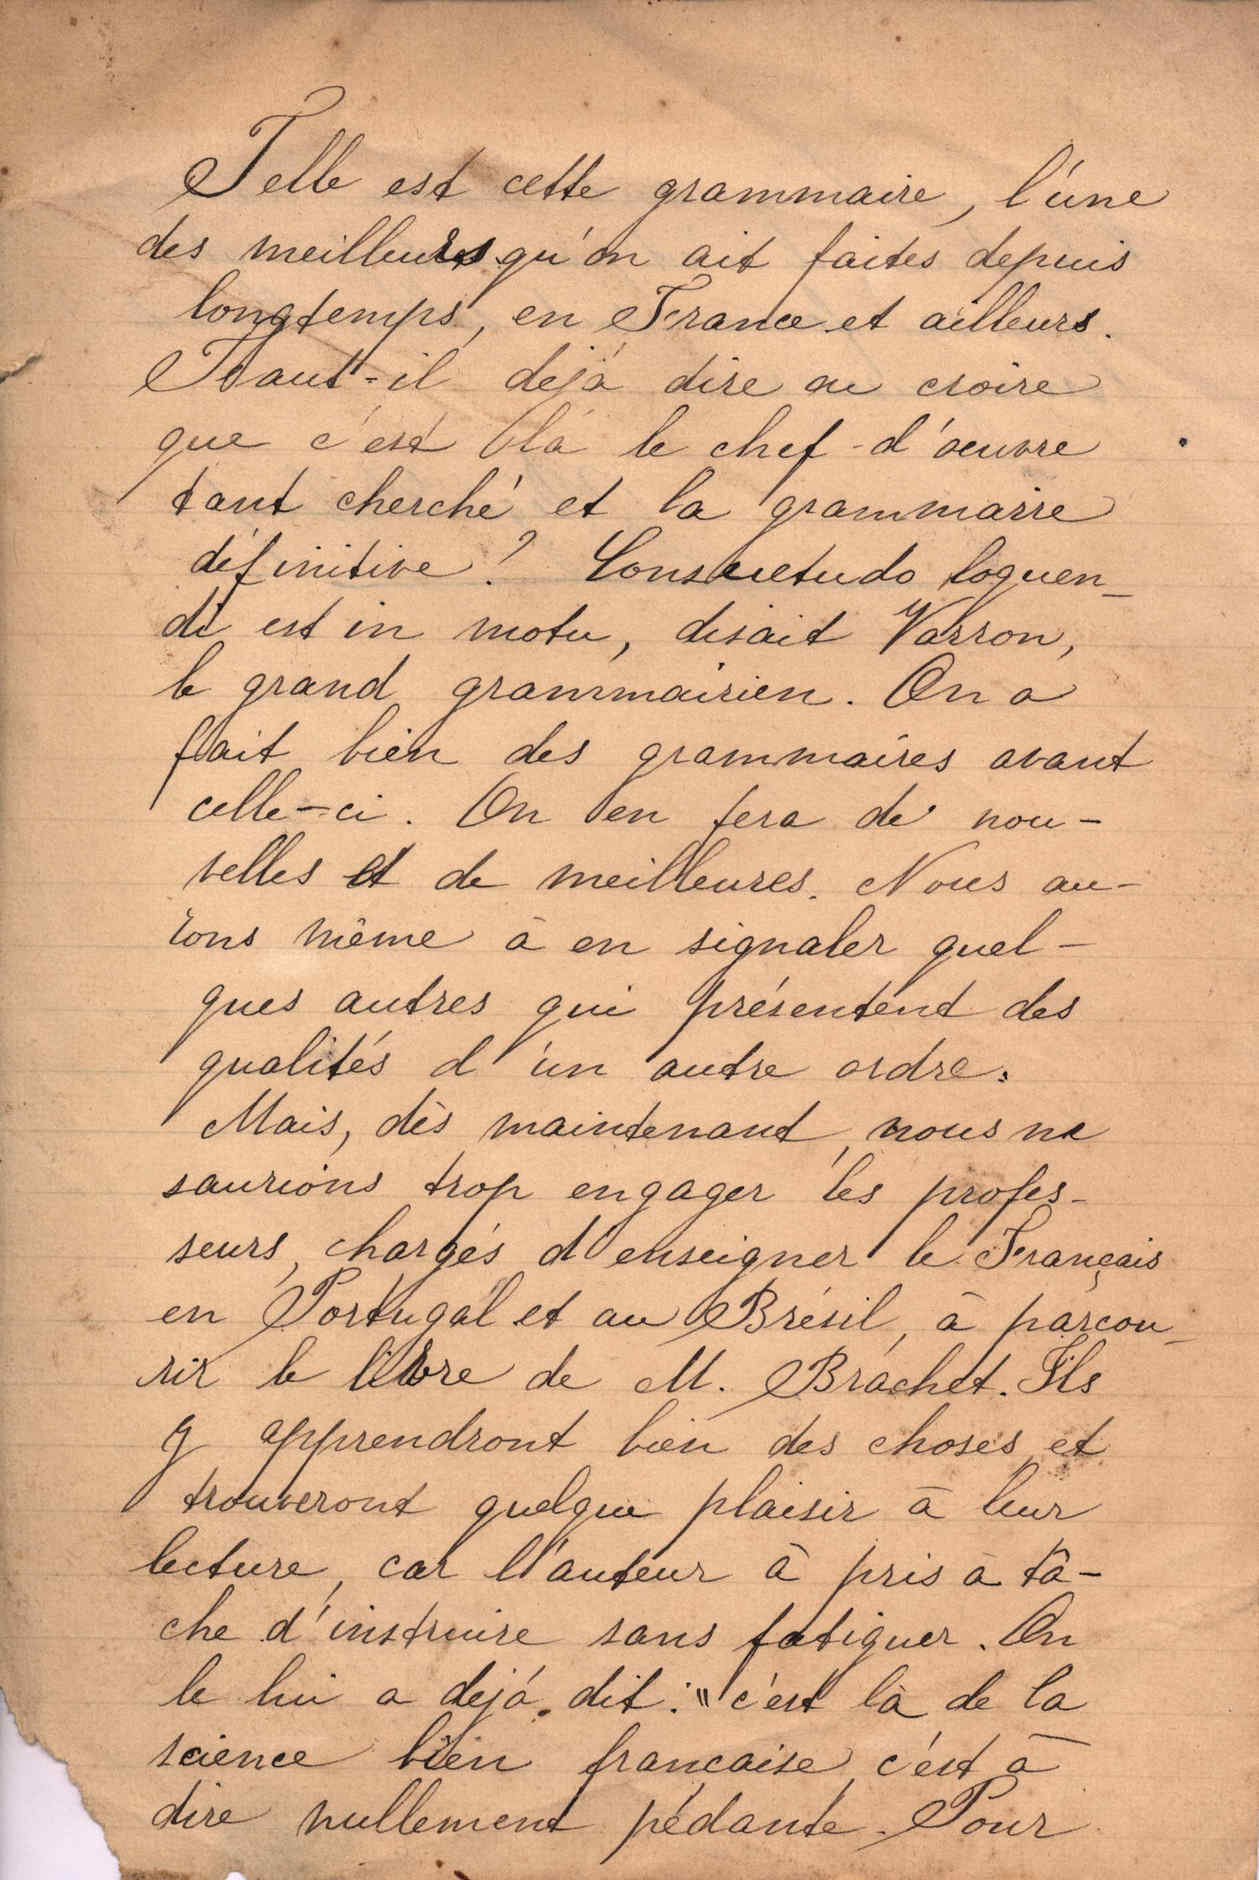 Telle est cette grammaire, l'une
des meilleures qu'on ait faites depuis
longtemps, en France et ailleurs.
Faut-il déjà dire ou croire
que c'est là le chef-d'œuvre
tant cherché et la grammaire
définitive? Consuetudo loquen-
di est in motu, disait Varron,
le grand grammairien. On a
fait bien des grammaires avant
celle-ci. On en fera de nou-
velles et de meilleures. Nous au-
rons même à en signaler quel-
ques autres qui présentent des
qualités d'un autre ordre.
Mais, dès maintenant, nous ne
saurions trop engager les profes-
seurs, chargés d'enseigner le Français
en Portugal et au Brésil, à parcou-
rir le livre de M. Brachet. Ils
y apprendront bien des choses et
trouveront quelque plaisir à leur
lecture, car l'auteur à pris à tâ-
che d'instruire sans fatiguer. On
le lui a déjà dit: "c'est là de la
science bien française, c'est à
dire nullement pédante. Pour